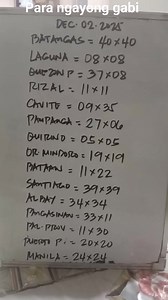 Para ngayong gabi
DEC. 02. 2025
BATANGAS = 40x40
LAGUNA = 08x08
QUEZON P = 37x08
RIZAL = 11x11
CAVITE = 09x35
PAMPANGA = 27x06
QUIRINO = 05x05
OR. MINDORO = 19x19
BATAAN = 11x22
SANTIAGO = 39x39
ALBAY = 34x34
PANGASINAN = 33x11
PAL. PROV = 11x30
PUERTO P. = 20x20
MANILA = 24x24